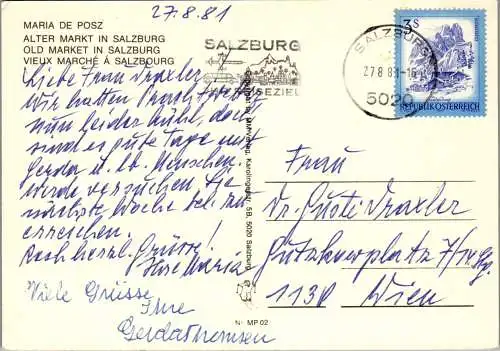 27.8.81
MARIA DE POSZ
ALTER MARKT IN SALZBURG
OLD MARKET IN SALZBURG
VIEUX MARCHÉ À SALZBOURG
SALZBURG
REISEZIEL
3 S
SALZBURG
27 8 81-16
5020
REPUBLIK ÖSTERREICH
Liebe Frau Draxler
Wir hatten Prachtwetter,
nun leider kühl, doch
sind es gute Tage mit
Gerda u. lb. Menschen.
Werde versuchen, Sie
nächste Woche tel. zu
erreichen.
Rech herzl. Grüsse!
Ihre Maria
Viele Grüsse
Ihre
Gerda Thomsen
Karolingerstr. 5B, 5020 Salzburg
Nr. MP 02
Frau
Dr. Gusti Draxler
Gutzkowplatz 7/
1130 Wien